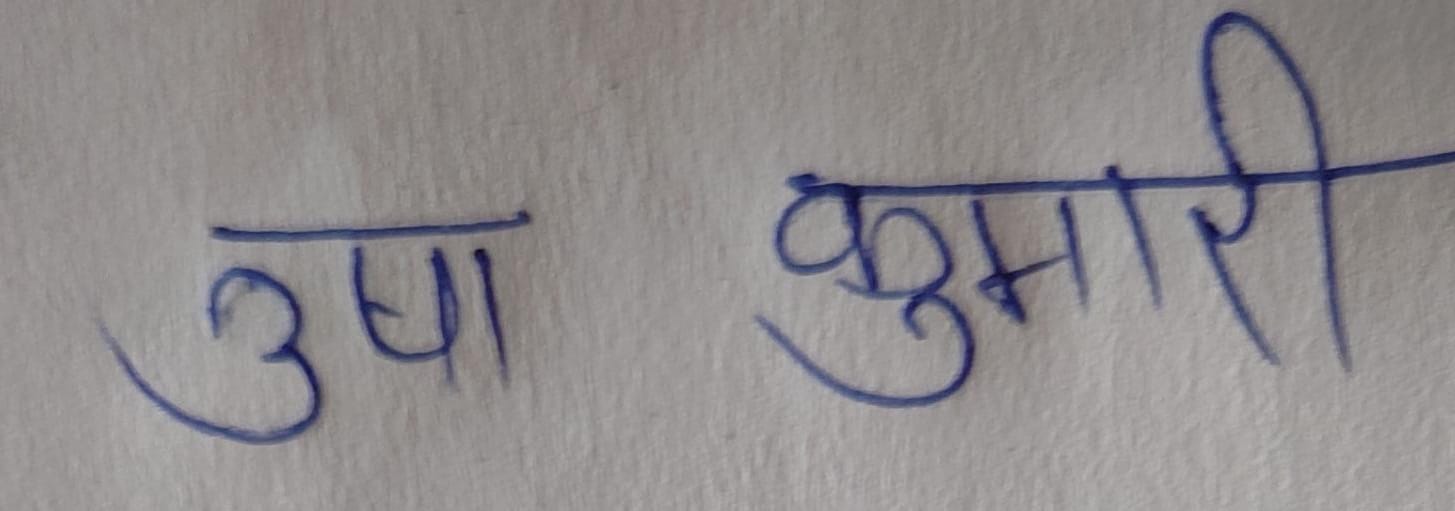 उषा कुमारी